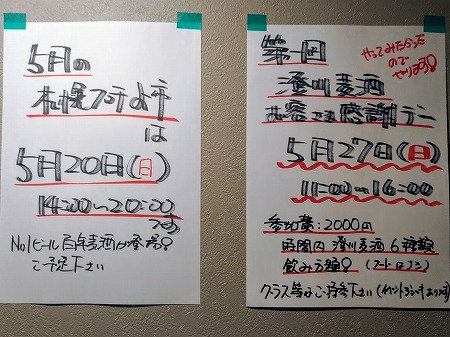 5月の
札幌プチよ市
は
5月20日(日)
14:00〜20:00
です
No1ビール 百年麦酒が登場!
ご予定下さい
第一回
やってみたかった
ので
やります!
澄川麦酒
お客さま感謝デー
5月27日(日)
11:00〜16:00
参加費:2000円
時間内 澄川麦酒6種類
飲み方題! (フードはナシ)
グラス等はご持参下さい(イベントグラスでもあります)